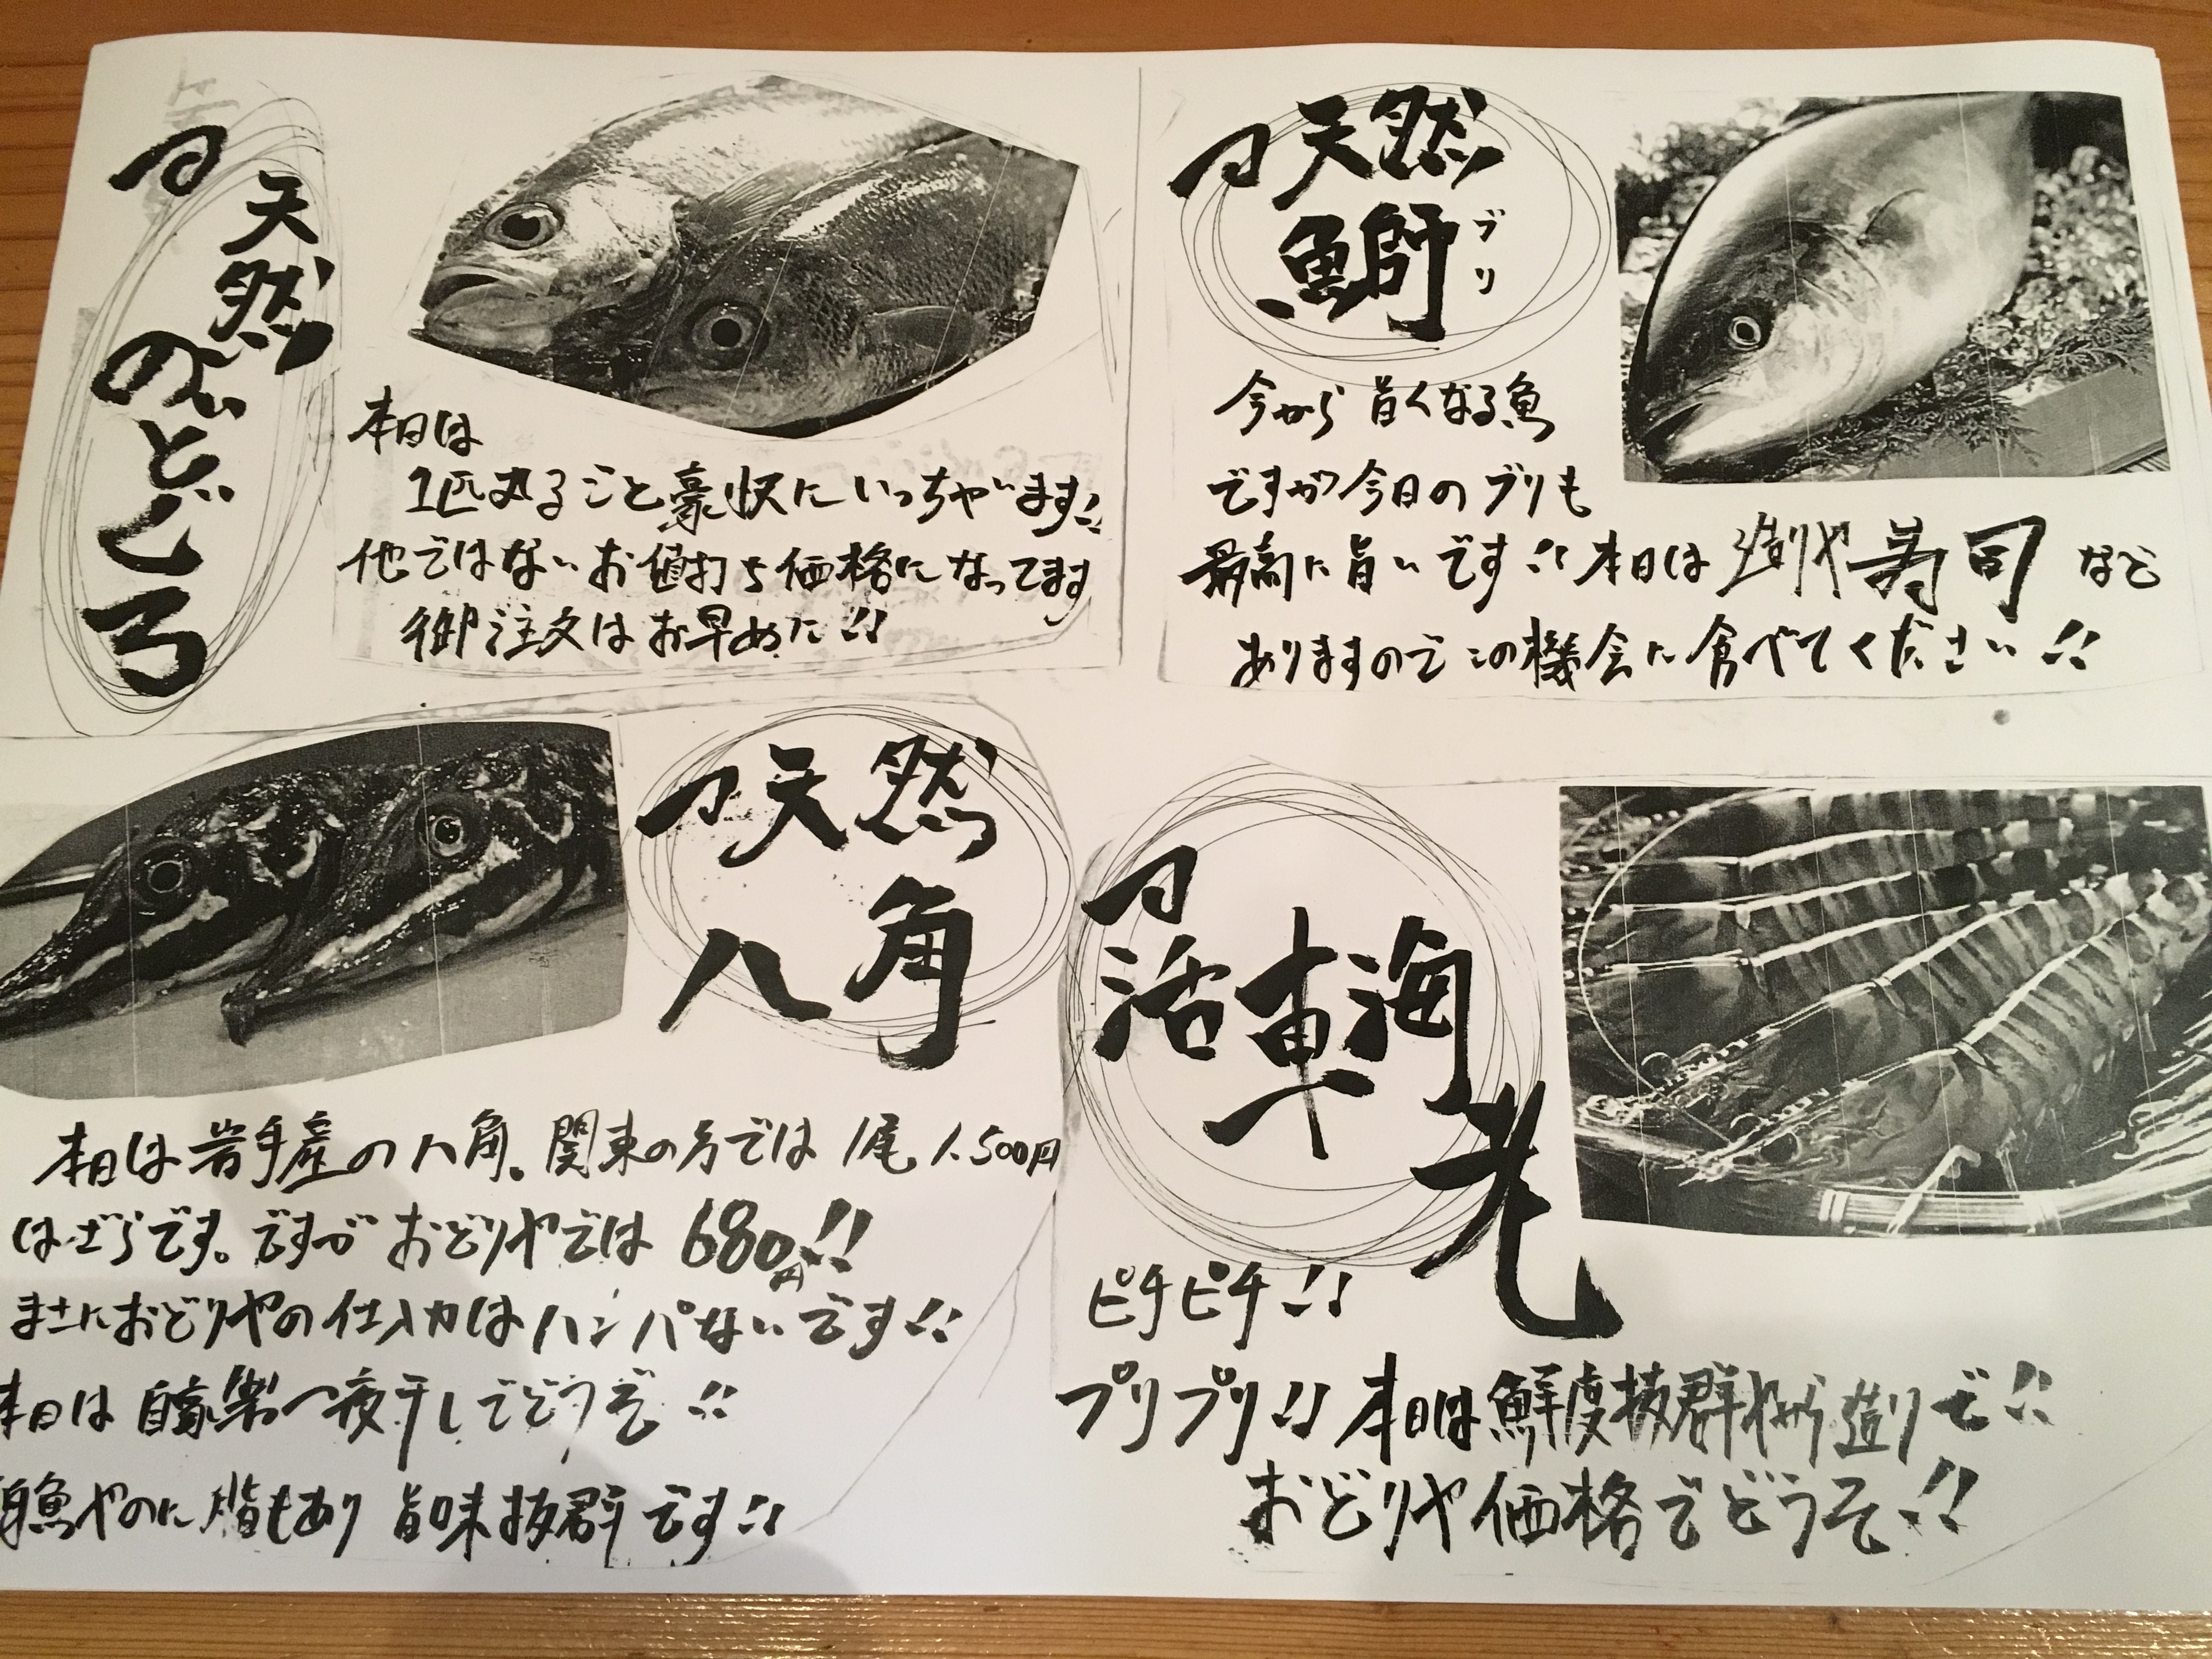 天然
のどぐろ
本日は
1匹丸ごと豪快にいっちゃいます!!
他ではないお値打ち価格になってます
御注文はお早めに!!
天然
鰤
ブリ
今から旨くなる魚
ですが今日のブリも
最高に旨いです!!本日は造りや寿司など
ありますのでこの機会に食べてください!!
天然
八角
本日は岩手産の八角。関東の方では1尾1,500円
はざらです。ですがおどりやでは680円!!
まさにおどりやの仕入力はハンパないです!!
本日は自家製一夜干しでどうぞ!!
白魚やのに脂もあり旨味抜群です!!
活車海老
ピチピチ!!
プリプリ!!本日は鮮度抜群やから造りで!!
おどりや価格でどうぞ!!